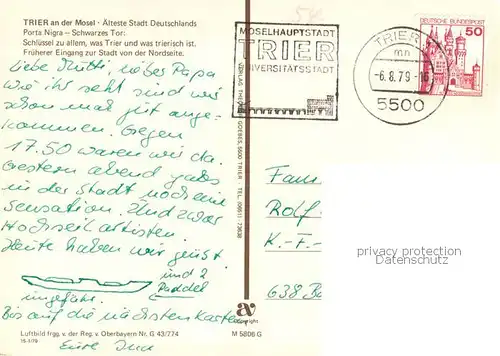 TRIER an der Mosel - Älteste Stadt Deutschlands
Porta Nigra – Schwarzes Tor:
Schlüssel zu allem, was Trier und was trierisch ist.
Früherer Eingang zur Stadt von der Nordseite.
Liebe Mutti, lieber Papa
wie ihr seht sind wir
schon mal gut ange-
kommen. Gegen
17.50 waren wir da.
Gestern abend gabs
in der Stadt noch eine
Sensation. Und zwar
Hochseilartisten.
Heute haben wir
und 2
Paddel
ungefähr.
Bis auf die nächsten Karten
Eure
Luftbild frgg. v. der Reg. v. Oberbayern Nr. G 43/774
MOSELHAUPTSTADT
TRIER
UNIVERSITÄTSSTADT
TRIER
mn
-6.8.79-16
5500
DEUTSCHE BUNDESPOST
50
GOEBEL, 5500 TRIER TEL. (0651)
Fam
Rolf
K.-F.-
638 Ba
privacy protection
watermark
av
M 5806 G